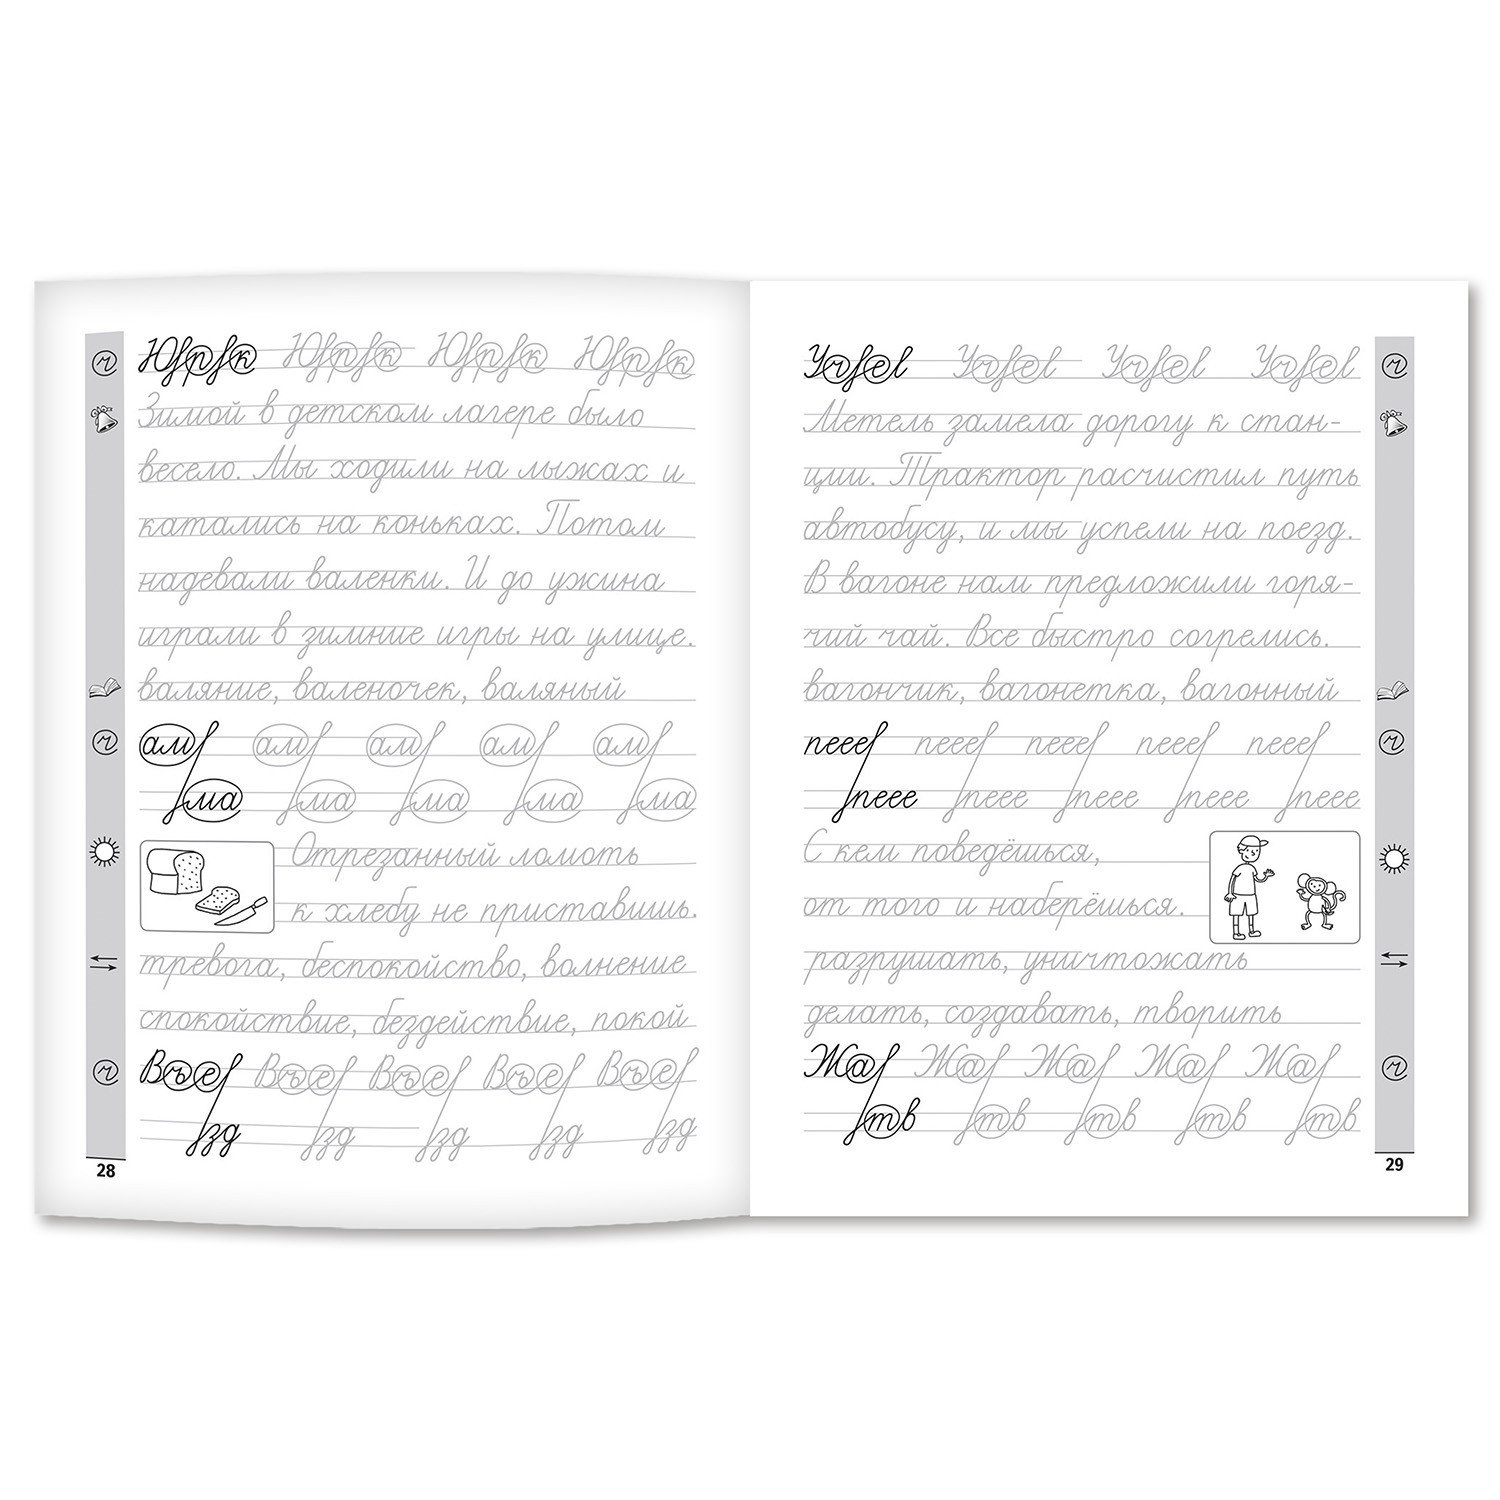 Зимой в детском лагере было
весело. Мы ходили на лыжах и
катались на коньках. Потом
надевали валенки. И до ужина
играли в зимние игры на улице.
валяние, валеночек, валяный
ам ам ам ам ам
ма ма ма ма ма
Отрезанный ломоть
к хлебу не приставишь.
тревога, беспокойство, волнение
спокойствие, бездействие, покой
Въе Въе Въе Въе Въе
зд зд зд зд зд
28
Метель замела дорогу к стан-
ции. Трактор расчистил путь
автобусу, и мы успели на поезд.
В вагоне нам предложили горя-
чий чай. Все быстро согрелись.
вагончик, вагонетка, вагонный
пеее пеее пеее пеее пеее
пеее пеее пеее пеее пеее
С кем поведёшься,
от того и наберёшься.
разрушать, уничтожать
делать, создавать, творить
Жа Жа Жа Жа Жа
тв тв тв тв тв
29